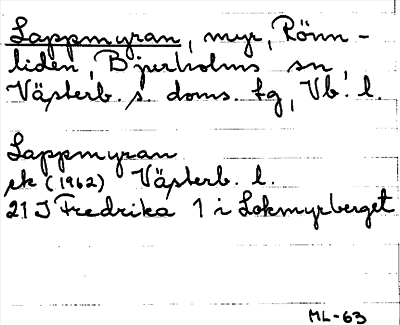 Lappmyran, myr, Rönn-
liden, Bjurholms sn,
Västerb. s. doms. tg, Vb. l.
Lappmyran
ek (1962) Västerb. l.
21 J Fredrika 1 i Lokmyrberget
ML-63